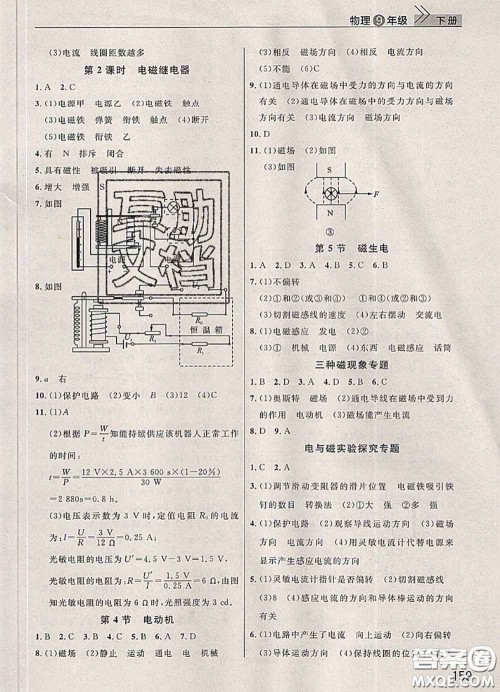 物理⑨年级 下册
(3)电流 线圈匝数越多
第2课时 电磁继电器
1. A 2. C
3. (1)电源甲 电源乙 (2)电磁铁 触点
(3)电磁铁 弹簧 衔铁 触点 (4)断开
(5)电磁铁 衔铁 触点
4. 有 N 排斥 闭合
5. 具有磁性 被吸引 断开 失去磁性
6. 增大 增强 S
7. 如图
电源
8. 如图
R₀
恒温箱
U₁
R₁
9. a 右
10. (1)保护电路 (2)变小 (3)12 (4)C
11. (1)A
(2)根据 I=W/P 知能持续供应该机器人正常工作
的时间:
t=W/P=12 V×2.5 A×3 600 s×(1-20%)/30 W
=2 880s=0.8 h.
(3)电压表示数为 3 V 时,定值电阻 R₀的电流
为 I=U/R₀=3 V/12 Ω=0.25 A;
光敏电阻的电压为 U′=4.5 V-3 V=1.5 V,
光敏电阻的电阻为 R=U′/I=1.5 V/0.25 A=6 Ω,由图
知此时光敏电阻的电阻为 6 Ω时,光强为 3E.
第4节 电动机
1. B 2. D 3. A 4. B 5. A 6. B 7. B
8. (1)磁场 (2)静止 运动 通电 电 机械
(3)相反 磁场 (4)相反 相反
(5)不能 (6)C
9. (1)通电导体在磁场中受力的方向与电流的方向
有关 (2)通电导体在磁场中受力的方向与磁场
方向有关
10. D
11. (1)磁场 (2)如图
(3)如图
S
F
N
③
第5节 磁生电
1. A 2. A 3. D 4. C 5. C 6. B
7. (1)不偏转
(2)①和②(或③) ①和③(或②) ②和③
(3)切割磁感线 (4)左右摆动 交流电
8. (1)电磁感应 发电 (2)变大
(3)① 机械 电源 (4)东西 电磁感应 话筒
9. (1)不偏转
三种磁现象专题
1. B 2. D 3. A 4. D 5. C 6. B
7. (1)奥斯特 磁场 (2)通电导线在磁场中受到力
的作用 电动机 (3)磁场能产生电流
8. D 9. A
电与磁实验探究专题
1. C 2. B
3. (1)调节滑动变阻器的滑片位置 电磁铁吸引铁
钉的数目 转换法 (2)① 大 强 ② 多
4. (1)保护电路 (2)观察导线运动方向 (3)磁场
方向 电流方向 (4)用灵敏电流计代替电源来
显示产生感应电流的方向
5. (1)灵敏电流计指针是否偏转 (2)切割磁感线运
动 (3)① 感应电流的方向和导体棒运动的方向
有关
6. (1)电路中产生了电流 向上运动 (2)导体运动
方向 (3)a、d (4)保持线圈的位置
159